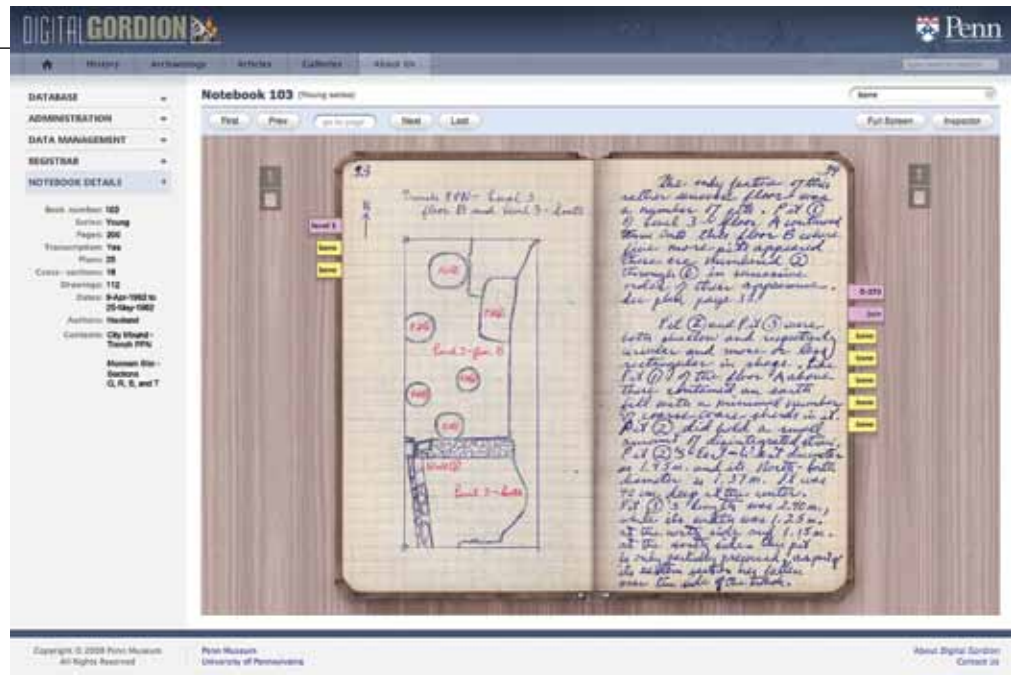 DIGITAL GORDION
Penn
History Archaeology Articles Galleries About Us
DATABASE
ADMINISTRATION
DATA MANAGEMENT
REGISTRAR
NOTEBOOK DETAILS
Book number: 103
Series: Young
Pages: 200
Transcription: Yes
Plans: 25
Cross-sections: 16
Drawings: 112
Dates: 9-Apr-1962 to
25-May-1962
Authors:
Contents: City Mound -
Trench PPN
Museum Site -
Sections
G, R, S, and T
Notebook 103 (Young series)
bone
First Prev go to page Next Last
Full Screen Inspector
23
Trench PPN - Level 3
floor B and Level 3 -
N
level 3
bone
bone
Level 3 - floor B
Level 3 -
The only feature of this
rather uneven floor was
a number of pits. Pit ①
of Level 3 - floor A continued
down into this floor B where
five more pits appeared
these are numbered ②
through ⑥ in successive
order of their appearance.
See plan page
Pit ② and Pit ③ were
both shallow and respectively
circular and more or less
rectangular in shape. Like
Pit ① of the floor A above
these contained an earth
fill with a minimal number
of coarse ware sherds in it.
Pit ② did hold a small
amount of disintegrated stone.
Pit ②'s East-West diameter
is 1.45 m. and its North-South
diameter is 1.37 m. It was
42 cm. deep at the center.
Pit ③'s length was 2.40 m.,
while its width was 1.25 m.
at the north side and 1.15 m.
at the south side. This pit
is only partially preserved, as part of
its eastern section has fallen
over the side of the trench.
bone
bone
bone
bone
bone
Copyright © 2009 Penn Museum
All Rights Reserved
Penn Museum
University of Pennsylvania
About Digital Gordion
Contact Us